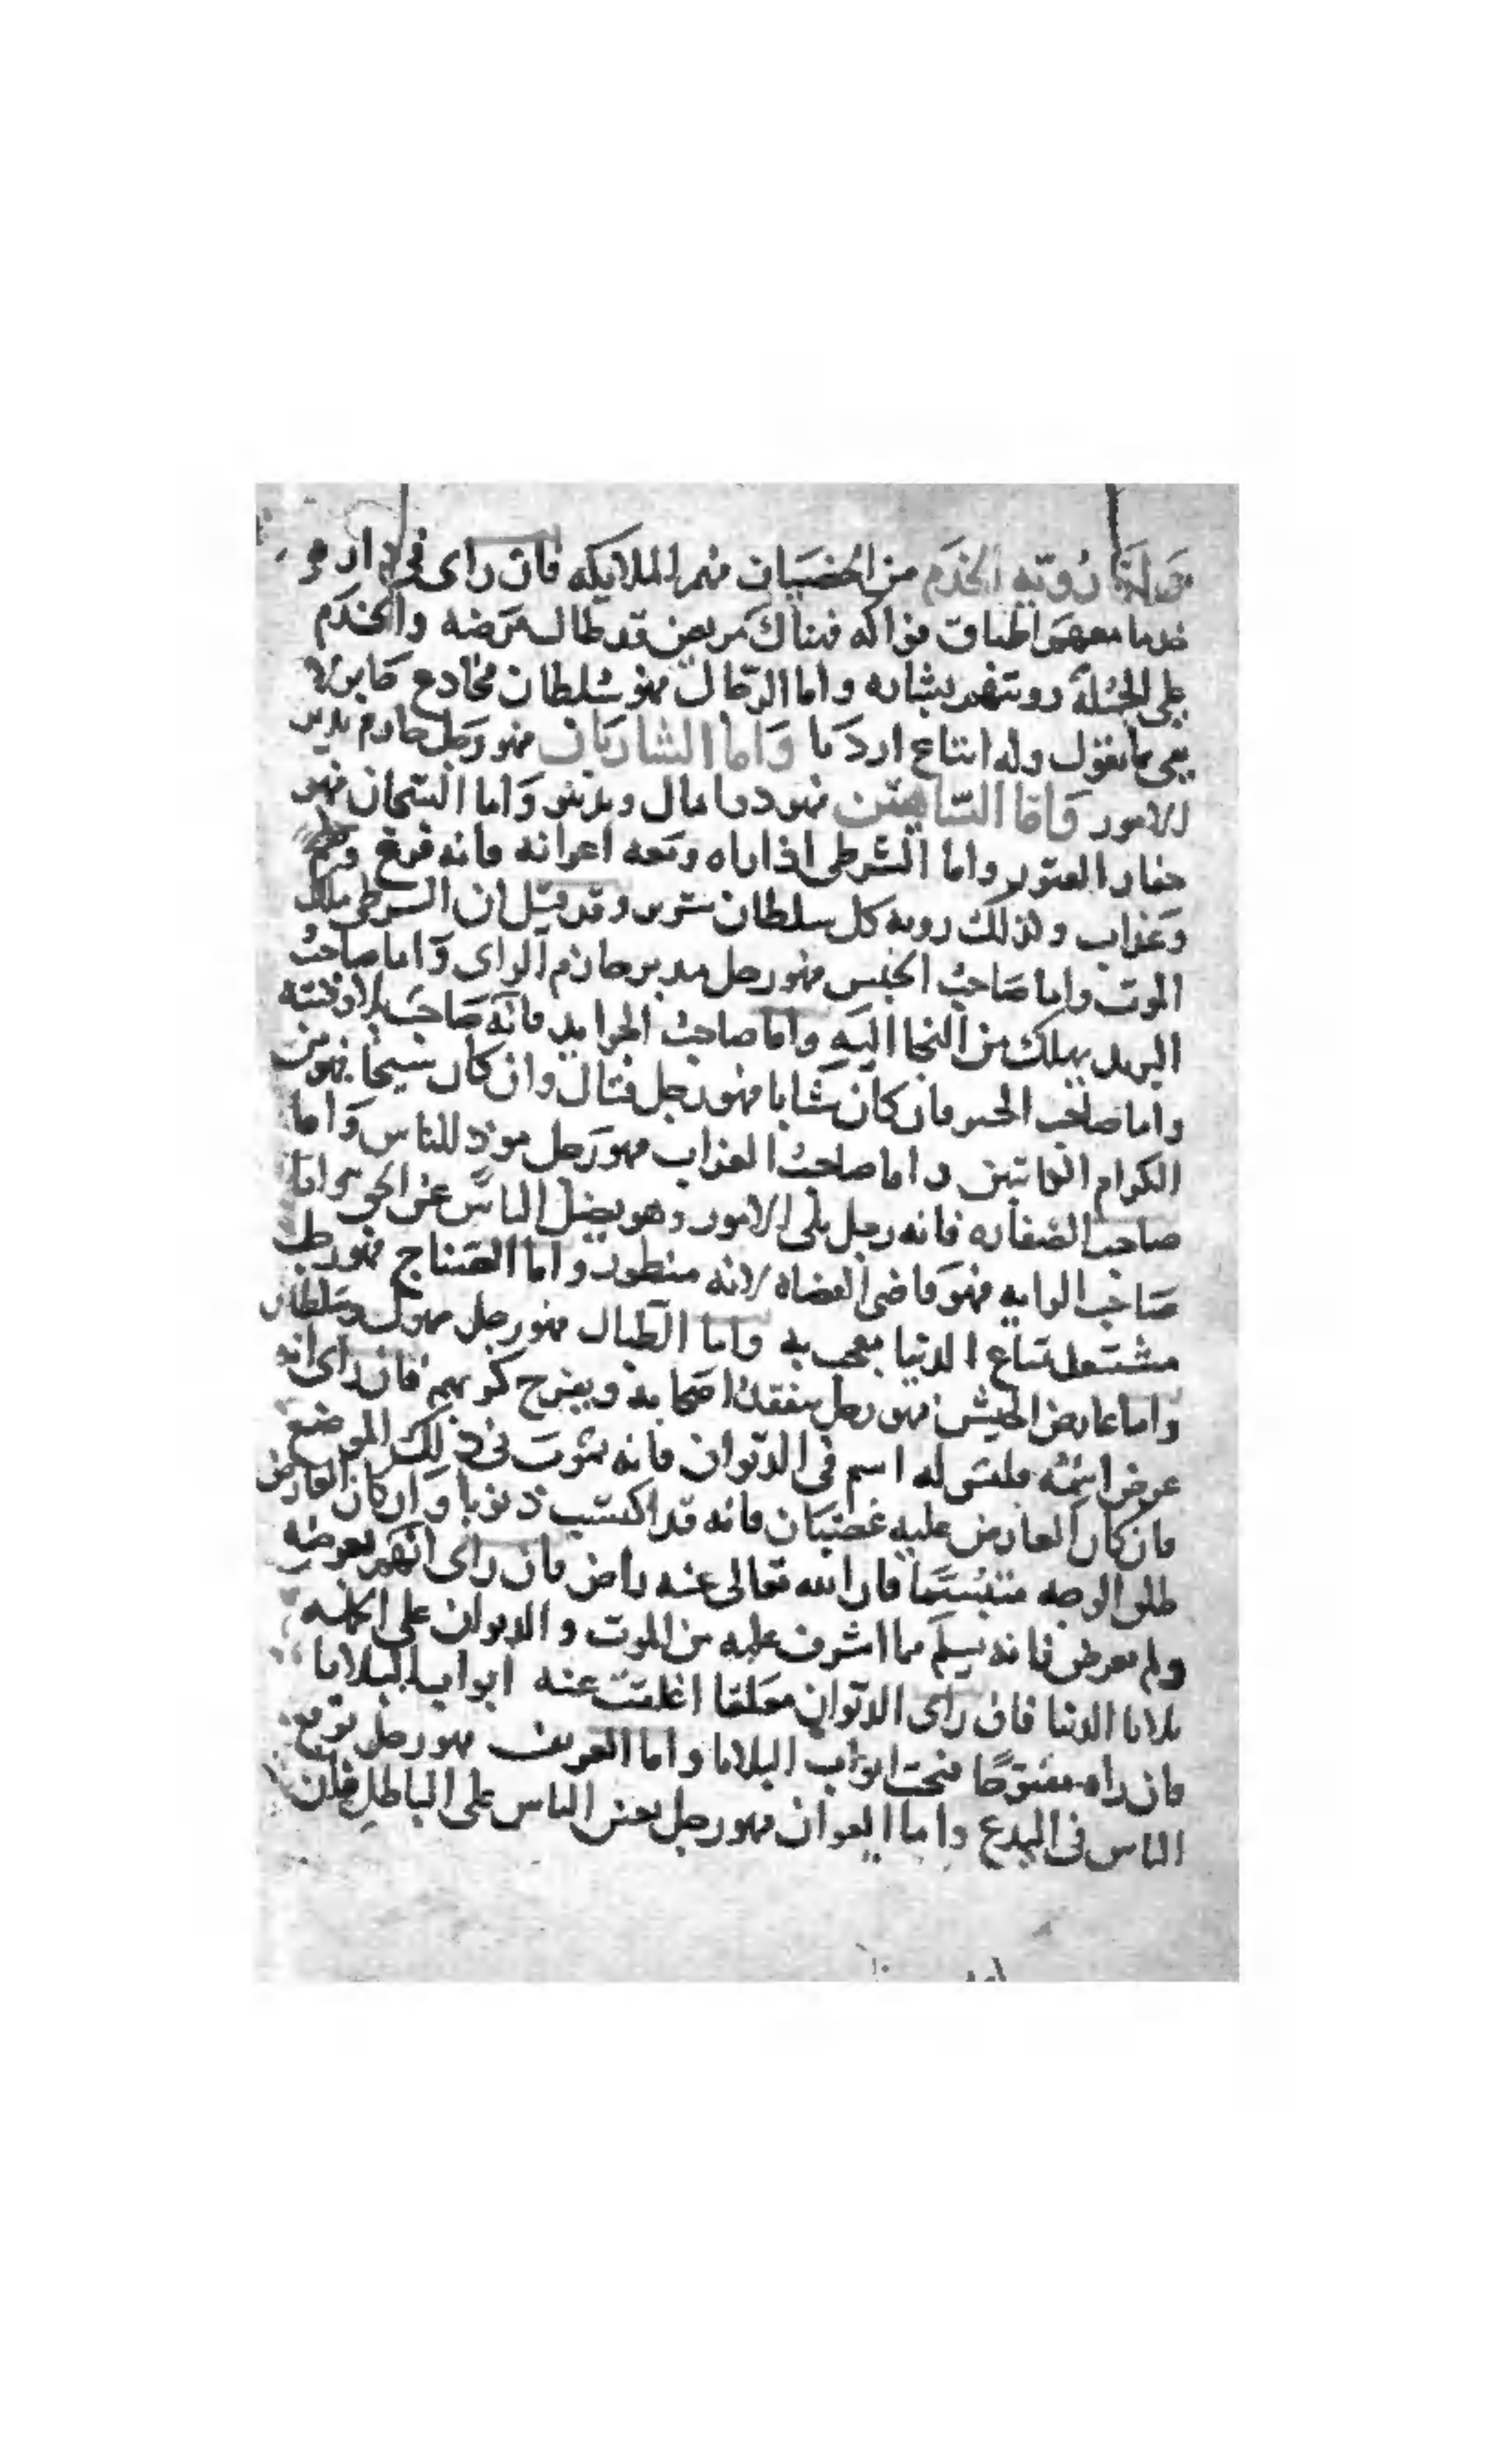 واما رؤيه الخدم من الخصيان فهم الملايكه فان راى في دار هو
خدما معهم اطباق فواكه فهناك مريض قد طال مرضه والخدم
على الجمله رويتهم بشاره واما الدجال فهو سلطان مخادع جاير لا
يفي بما يقول وله اتباع اردياء واما الشاربان فهو رجل حازم مدبر
للامور واما السايس فهو مال واما السجان فهو
حفار القبور واما الشرطي اذا اراه ومعه اعوانه فانه فزع وهم
وعذاب وكذلك رويه كل سلطان شرير وقد قيل ان الشرطي ملك
الموت واما صاحب الحبس فهو رجل مدبر حازم الراى واما صاحب
البريد يهلك من التجا اليه واما صاحب الجرايد فانه صاحب بلا وفتنه
واما صاحب الجسر فان كان شابا فهو رجل قتال وان كان شيخا فهو من
الكرام الكاتبين واما صاحب العذاب فهو رجل موذ للناس واما
صاحب الصفاره فانه رجل يلي الامور وهو يضل الناس عن الحق واما
صاحب الرايه فهو قاضي القضاه لانه منظور واما الصناج فهو رجل
مشتغل بمتاع الدنيا معجب به واما الطبال فهو رجل مهول وسلطان
واما عارض الجيش فهو رجل يتفقد اصحابه ويفرج كربهم فان راى انه
عرض اسمه فلقى له اسم في الديوان فانه يموت في ذلك الموضع
فان كان العارض عليه غضبان فانه قد اكتسب ذنوبا وان كان العارض
طلق الوجه متبسما فان الله تعالى عنه راض فان راى انهم يعرضه
ولم يعرض فانه يسلم مما اشرف عليه من الموت والديوان على الجمله
بلايا الدنيا فان راى الديوان مغلقا اغلقت عنه ابواب البلايا
فان راه مفتوحا فتحت ابواب البلايا واما العريف فهو رجل يوقع
الناس في البدع واما العوان فهو رجل يعين الناس على الباطل فان